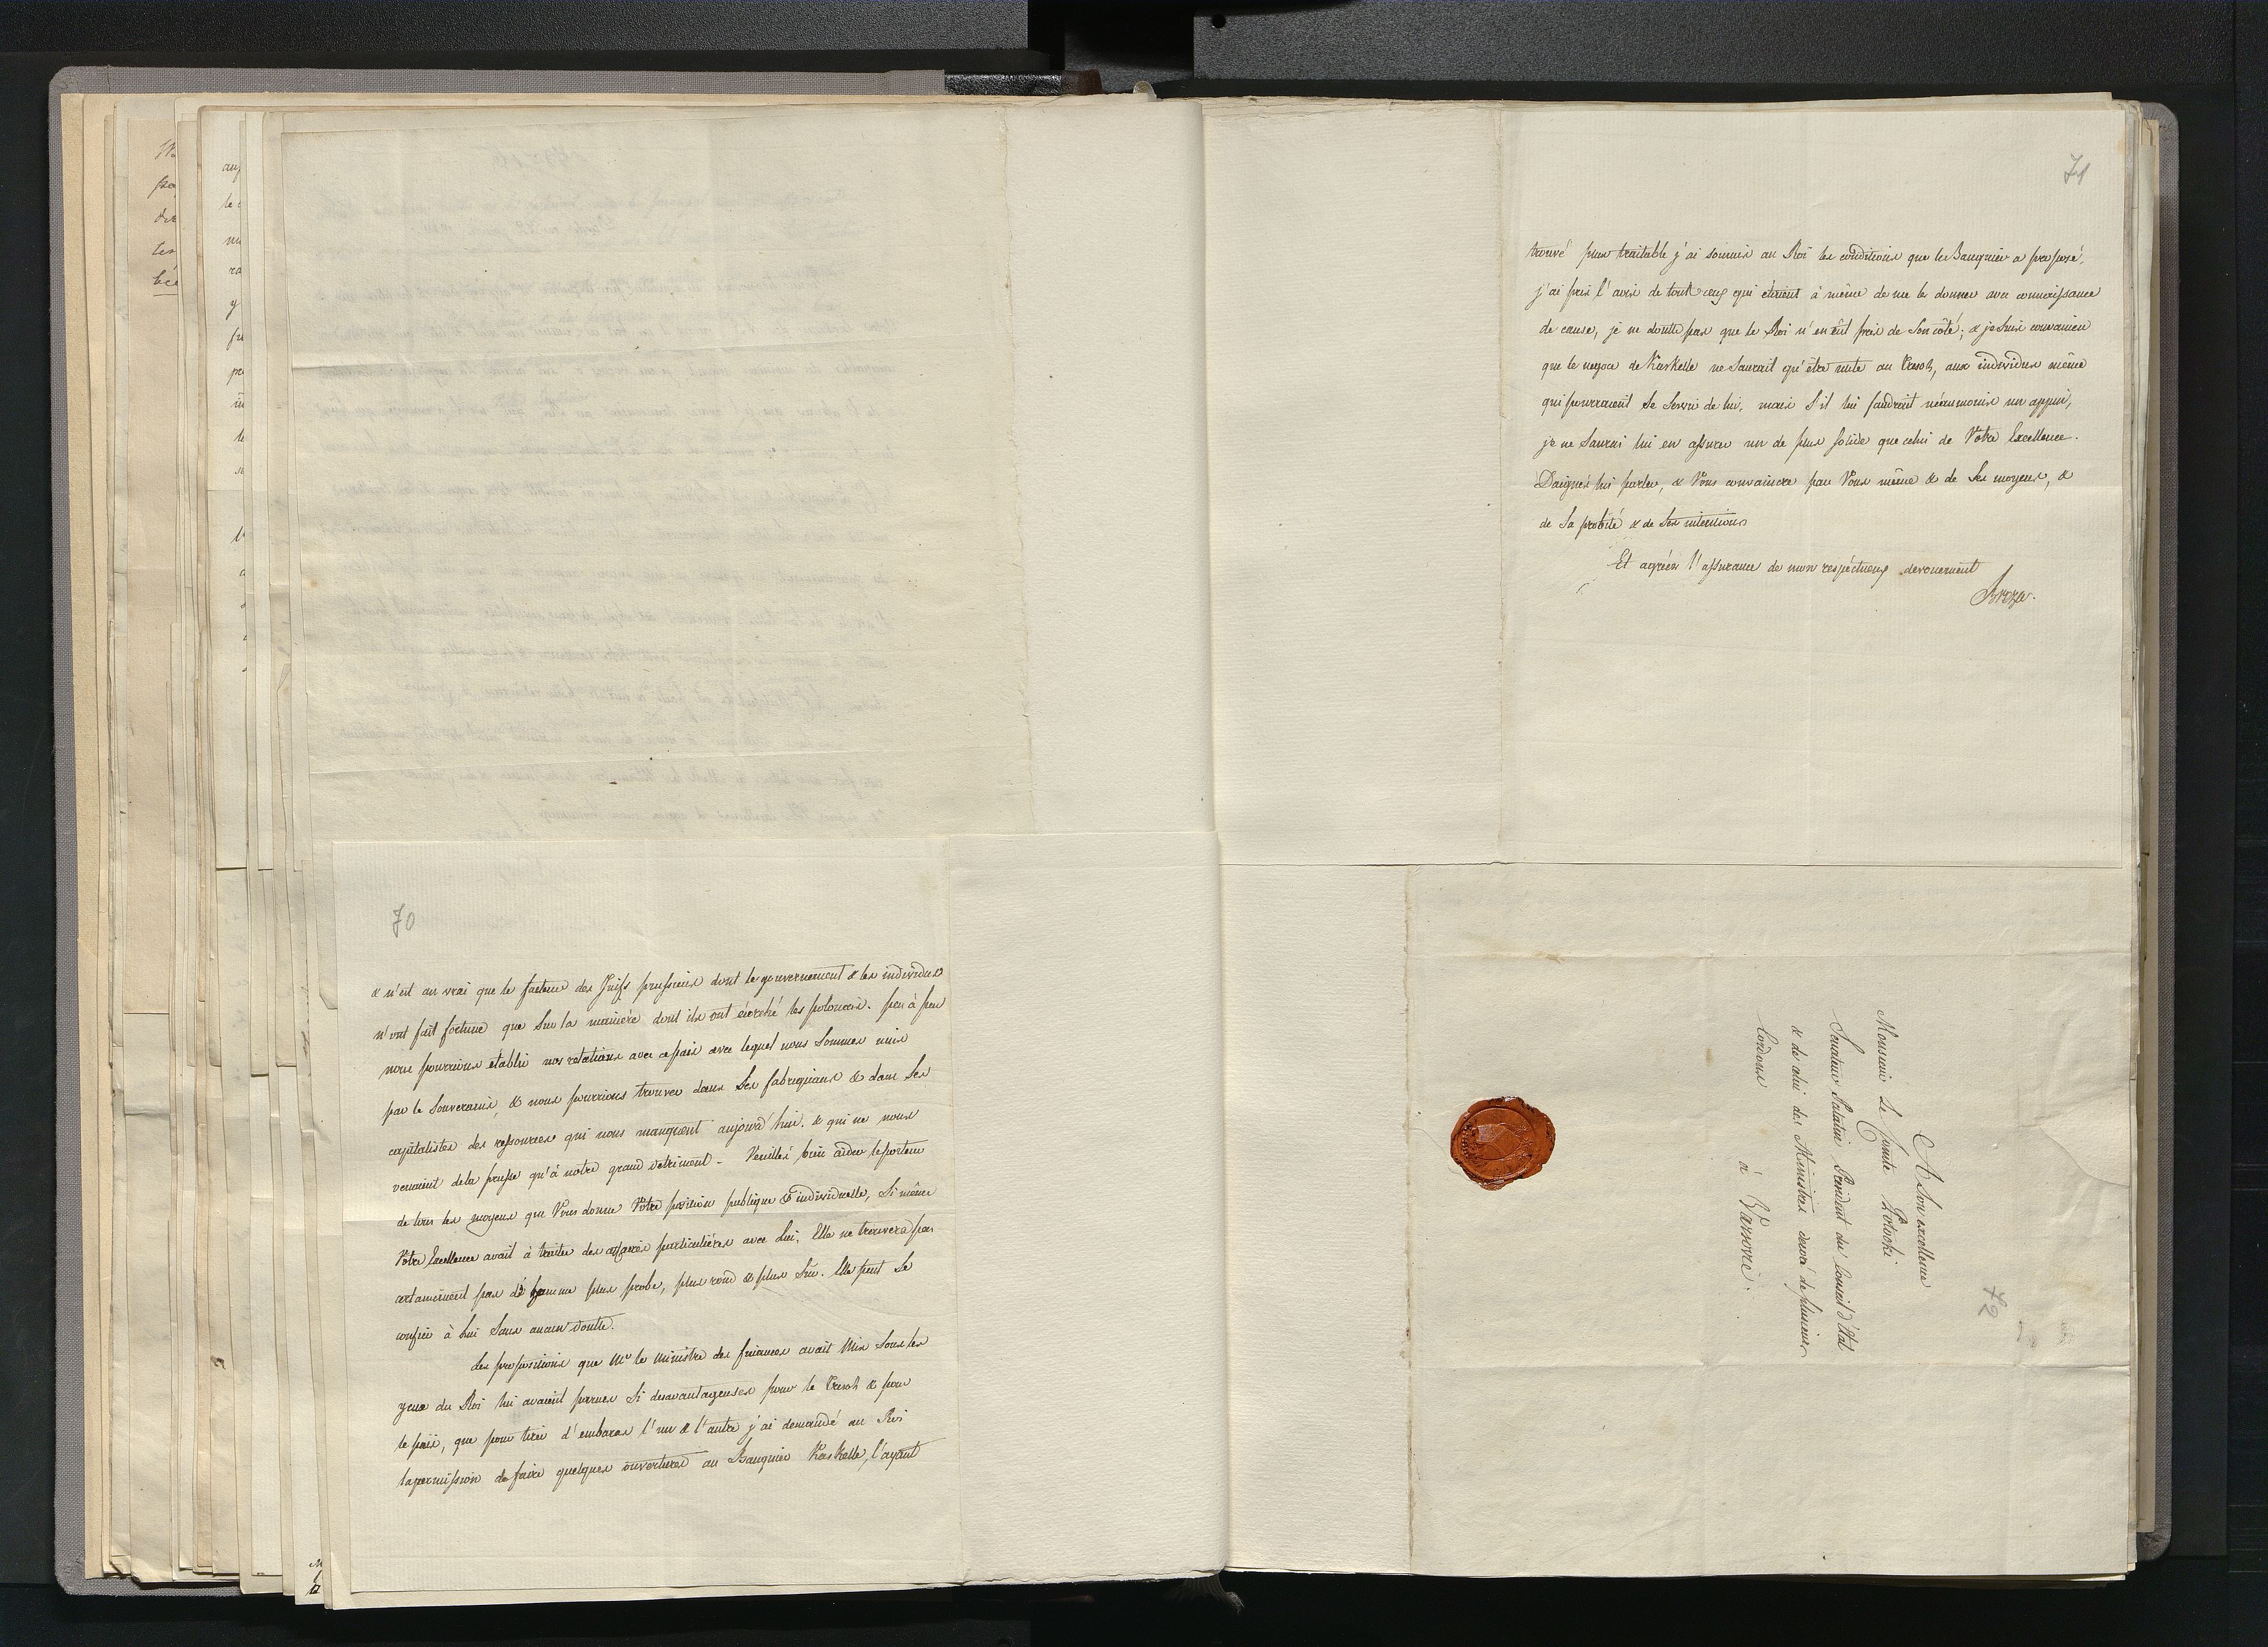 70
& n'est au vrai que le facteur des Juifs prussiens dont le gouvernement & les individus
n'ont fait fortune que sur la manière dont ils ont écorché les polonais. peu à peu
nous pourrions etablir nos relations avec ce païs avec lequel nous sommes unis
par le Souverain, & nous pourrions trouver dans Ses fabriquans & dans Ses
capitalistes des ressources qui nous manquent aujourd'hui. & qui ne nous
venaient de la prusse qu'à notre grand detriment - Veuillés bien aider le porteur
de tous les moyens que Vous donne Votre position publique & individuelle, Si même
Votre Excellence avait à traiter des affaires particulières avec Lui, Elle ne trouvera pas
certainement pas d' homme plus probe, plus rond & plus Sûr. Elle peut Se
confier à Lui Sans aucun doute.
Les propositions que Mr le Ministre des finances avait Mis Sous les
yeux du Roi lui avaient parues Si desavantageuses pour le Tresor & pour
le païs, que pour tirer d'embaras l'un & l'autre j'ai demandé au Roi
la permission de faire quelques ouvertures au Banquier Kaskelle, l'ayant
71
trouvé plus traitable j'ai soumis au Roi les conditions que le Banquier a proposé,
j'ai pris l'avis de tout ceux qui étaient à même de me le donner avec connaissance
de cause, je ne doute pas que le Roi n'en eût pris de Son côté; & je Suis convaincu
que le negoce de Kaskelle ne Saurait qu'être utile au Tresor, aux individus même
qui pourraient Se Servir de lui, mais S'il lui faudrait néanmoins un appui,
je ne Saurai lui en assurer un de plus solide que celui de Votre Excellence.
Daignés lui parler, & Vous convaincre par Vous même & de Ses moyens, &
de Sa probité & de Ses intentions
Et agréés l'assurance de mon respéctueux devouement
Breza.
72
A Son excellence
Monsieur Le Comte Potocki
Senateur Palatin President du Conseil d'Etat
& de celui des Ministres decoré de plusieurs
Cordons
à Varsovie.